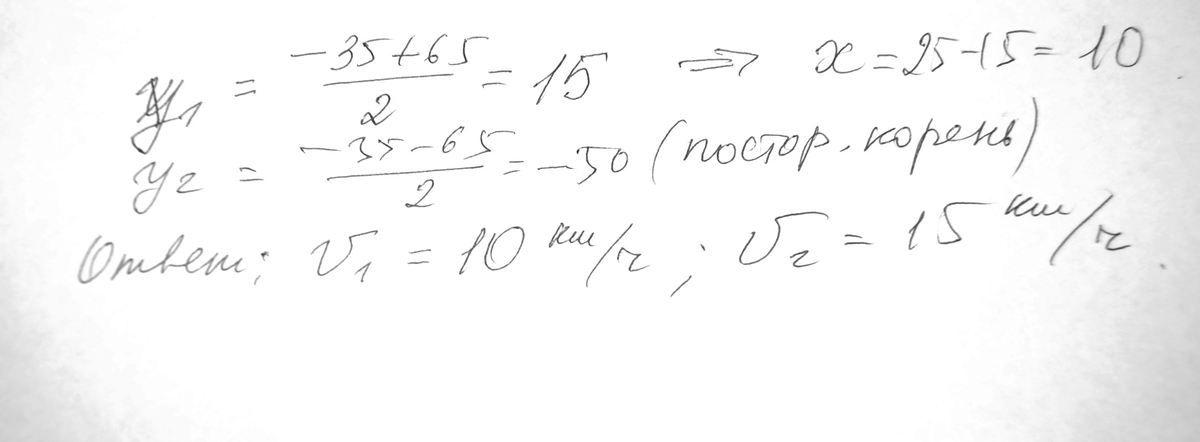 y₁ = (-35+65)/2 = 15 => x = 25-15 = 10
y₂ = (-35-65)/2 = -50 (постор. корень)
Ответ: V₁ = 10 км/ч ; V₂ = 15 км/ч.